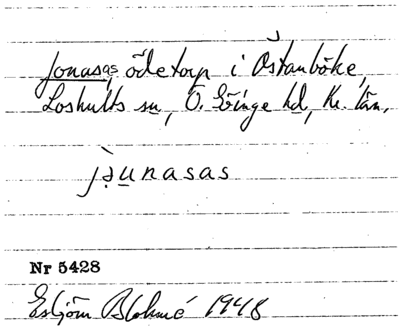 Jonasas, ödetorp i Östanböke,
Loshults sn, Ö. Göinge hd, Kr. län.
jə̣̀u̲nasas
Nr 5428
Esbjörn Blohmé 1948